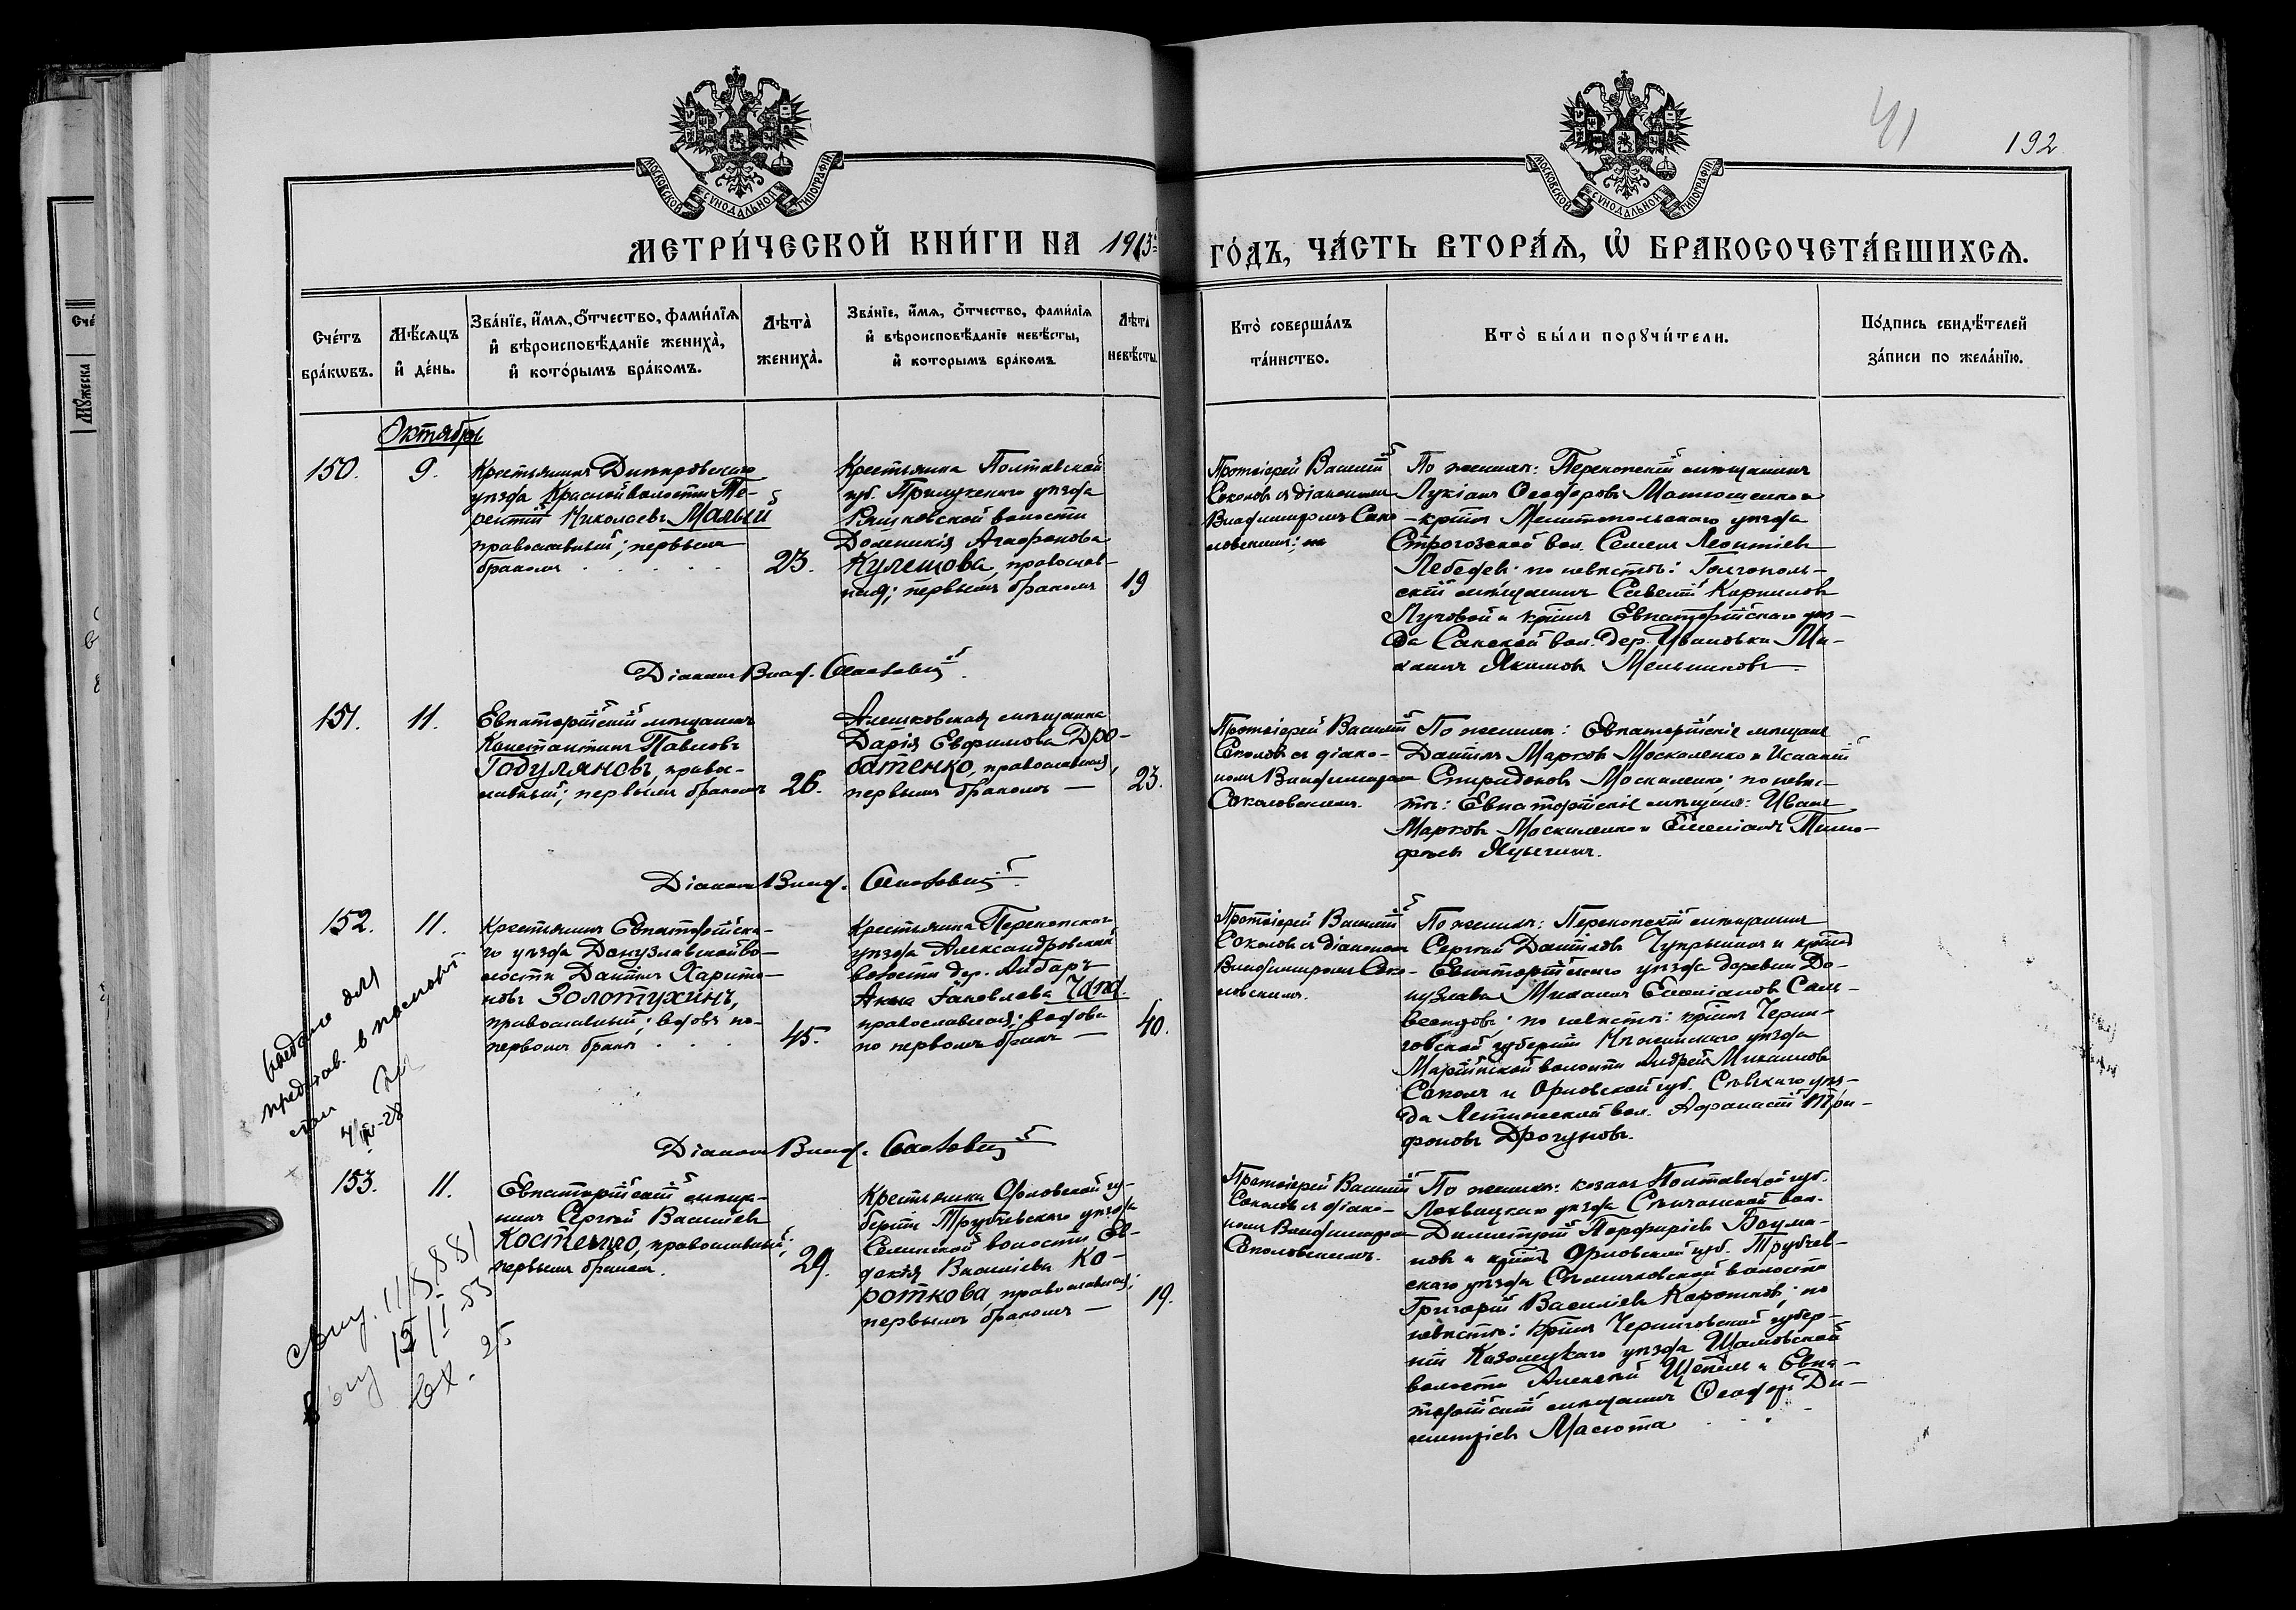 41
192
МОСКОВСКОЙ СѴНОДАЛЬНОЙ ТИПОГРАФІИ
МОСКОВСКОЙ СѴНОДАЛЬНОЙ ТИПОГРАФІИ
МЕТРИ́ЧЕСКОЙ КНИ́ГИ НА 1913й ГО́ДЪ, ЧА́СТЬ ВТОРА́Ѧ, Ѽ БРАКОСОЧЕТА́ВШИХСѦ.
Сче́тъ бра́кѡвъ.
Мѣ́сѧцъ и҆ де́нь.
Зва́нїе, и҆́мѧ, ѻ҆́тчество, фами́лїѧ
и҆ вѣроисповѣ́данїе жениха̀,
и҆ кото́рымъ бра́комъ.
Лѣта̀ жениха̀.
Зва́нїе, и҆́мѧ, ѻ҆́тчество, фами́лїѧ
и҆ вѣроисповѣ́данїе невѣ́сты,
и҆ которымъ бра́комъ
Лѣта̀ невѣ́сты.
Кто̀ соверша́лъ та́инство.
Кто̀ бы́ли порꙋчи́тели.
По́дпись свидѣ́телей
за́писи по жела́нїю.
Октябрь
150.
9.
Крестьянинъ Днѣпровскаго
уѣзда Красной волости Те-
рентій Николаевъ Малый
православный; первымъ
бракомъ
23.
Крестьянка Полтавской
губ. Прилукскаго уѣзда
волости
Домникія Агафонова
Кулешова, православ-
ная; первымъ бракомъ
19
Протоіерей Василій
Соколовъ съ діакономъ
Владиміромъ Сако-
ловскимъ;
По женихѣ: Перекопскій мѣщанинъ
Лукіанъ Ѳеодоровъ Матюшенко и
кр-нъ Мелитопольскаго уѣзда
Строгозской вол. Семенъ Леонтіевъ
Лебедевъ; по невѣстѣ:
скій мѣщанинъ Савелій Корниловъ
Луговой и кр-нъ Евпаторійскаго уѣз-
да Сакской вол. дер. Ивановки Ми-
хаилъ Якимовъ Мельниковъ.
Діаконъ Влад. Соколовскій
151.
11.
Евпаторійскій мѣщанинъ
Константинъ Павловъ
Годуляновъ, право-
славный; первымъ бракомъ
26.
Алешковская мѣщанка
Дарія Евфимова Дро-
батенко, православная,
первымъ бракомъ —
23.
Протоіерей Василій
Соколовъ съ діако-
номъ Владиміромъ
Соколовскимъ.
По женихѣ: Евпаторійскіе мѣщане
Даніилъ Марковъ Москаленко и Исаакій
Спиридоновъ Москаленко; по невѣ-
стѣ: Евпаторійскіе мѣщане: Иванъ
Марковъ Москаленко и Емеліанъ Тимо-
феевъ
Діаконъ Влад. Соколовскій
152.
11.
Крестьянинъ Евпаторійска-
го уѣзда Донузлавской во-
лости Даніилъ Харито-
новъ Золотухинъ,
православный; вдовъ по-
первомъ бракѣ
45.
Крестьянка Перекопскаго
уѣзда Александровской
волости дер. Айбаръ
Анна Іаковлева
православная; вдова
по первомъ бракѣ —
40.
Протоіерей Василій
Соколовъ съ діакономъ
Владиміромъ Соко-
ловскимъ.
По женихѣ: Перекопскій мѣщанинъ
Сергѣй Даніиловъ Чупрынинъ и кр-нъ
Евпаторійскаго уѣзда деревни До-
нузлава Михаилъ Емеліановъ
по невѣстѣ: кр-нъ Черни-
говской губерніи уѣзда
волости Андрей Михаиловъ
и Орловской губ. Сѣвскаго уѣз-
да вол. Афанасій Три-
фоновъ Дрогуновъ.
Діаконъ Влад. Соколовскій
153.
11.
Евпаторійскій мѣща-
нинъ Сергѣй Василіевъ
Костенко, православный;
первымъ бракомъ.
29.
Крестьянка Орловской гу-
берніи Трубчевскаго уѣзда
волости Ев-
докія Василіева Ко-
роткова, православная;
первымъ бракомъ —
19.
Протоіерей Василій
Соколовъ съ діако-
номъ Владиміромъ
Соколовскимъ.
По женихѣ: козакъ Полтавской губ.
Лохвицкаго уѣзда вол.
Димитрій Порфиріевъ Баума-
новъ и кр-нъ Орловской губ. Трубчев-
скаго уѣзда волости
Григорій Василіевъ Коротковъ; по
невѣстѣ: кр-нъ Черниговской губер-
ніи Козелецкаго уѣзда
волости Алексѣй и Евпа-
торійскій мѣщанинъ Ѳеодоръ Ди-
митріевъ Масюта
выдано для
представ.
118881
15/I-53
вх. 25